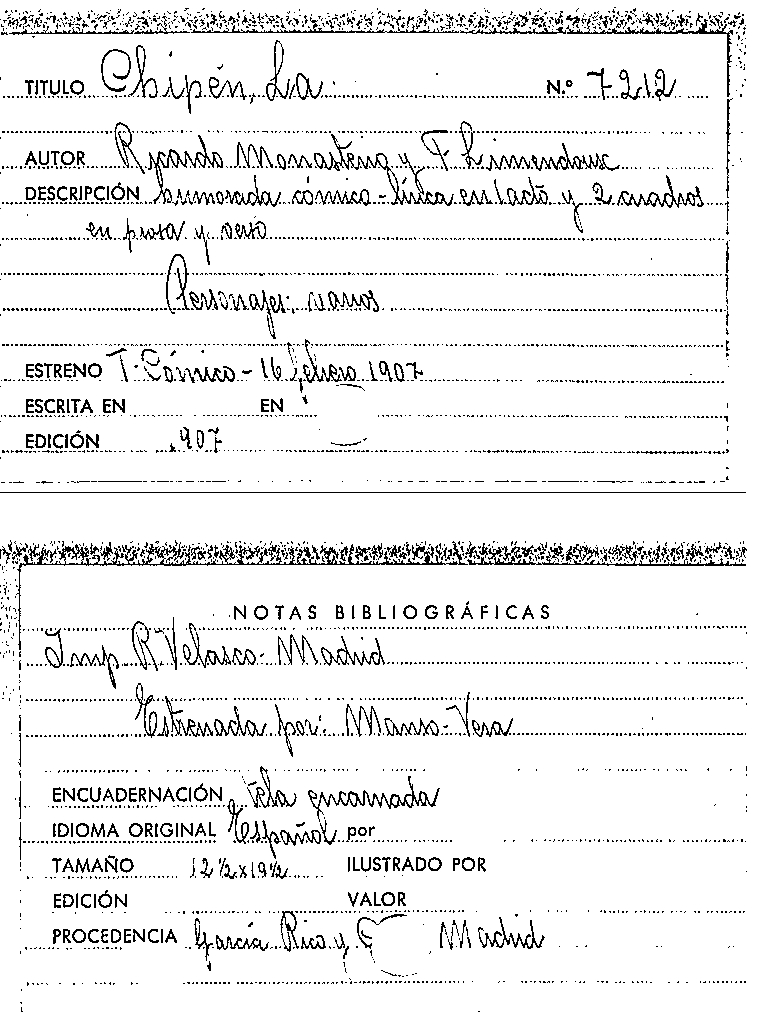 TITULO Chipén, La N.º 7212
AUTOR Ricardo Monasterio y F Limendoux
DESCRIPCIÓN humorada cómico-lírica en 1 acto y 2 cuadros
en prosa y verso
Personajes: varios
ESTRENO T. Cómico - 16 febrero 1907
ESCRITA EN EN
EDICIÓN 907
NOTAS BIBLIOGRÁFICAS
Imp R. Velasco - Madrid
Estrenada por: Manso-Vera
ENCUADERNACIÓN tela encarnada
IDIOMA ORIGINAL Español por
TAMAÑO 12 ½ x 19 ½ ILUSTRADO POR
EDICIÓN VALOR
PROCEDENCIA García Rico y C Madrid